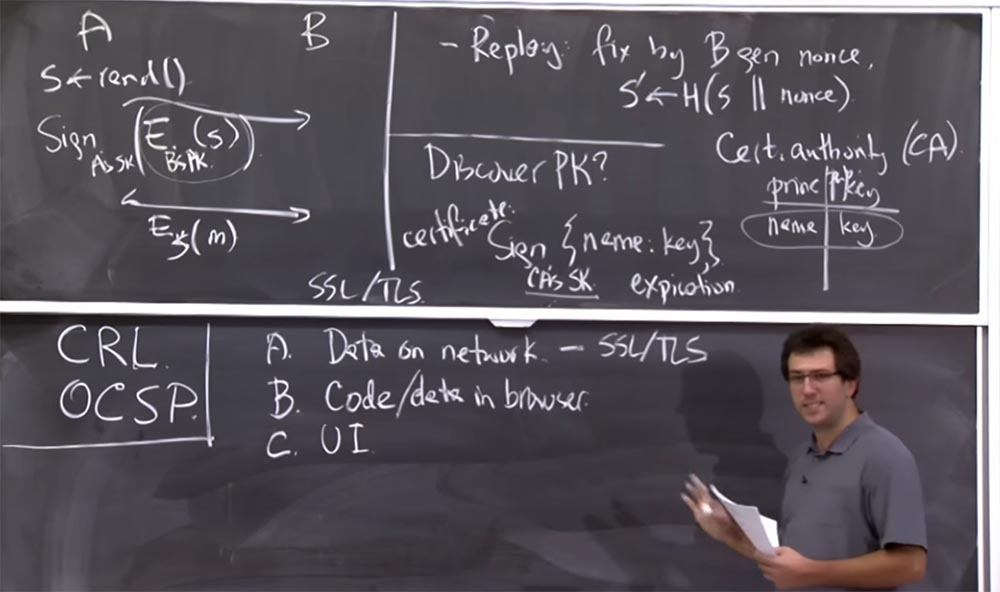 A B
S←rand()
Sign A's SK (E B's PK (s))
E s' (m)
SSL/TLS.
- Replay: fix by B gen nonce,
S'←H(s || nonce)
Discover PK?
certificate:
Sign {name: key}
CA's SK expiration
Cert. authority (CA)
princ key
name key
CRL
OCSP
A. Data on network. - SSL/TLS
B. Code/data in browser.
C. UI